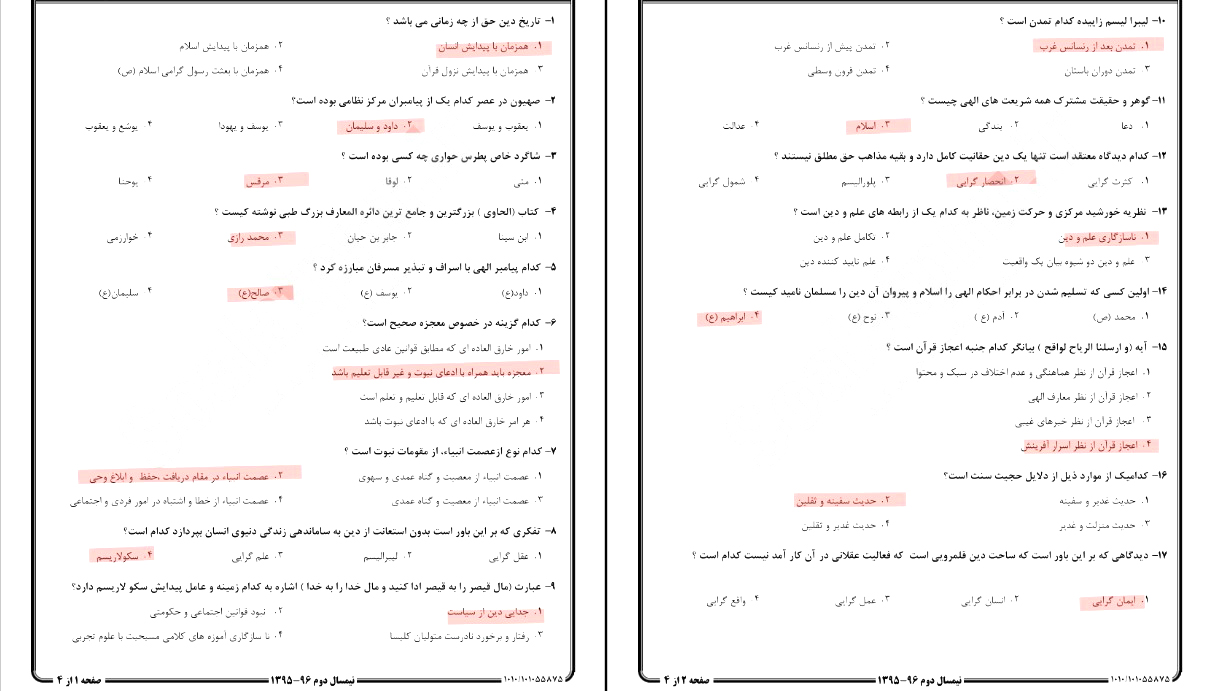 ۱- تاریخ دین حق از چه زمانی می باشد ؟
۱. همزمان با پیدایش انسان
۲. همزمان با پیدایش اسلام
۳. همزمان با پیدایش نزول قرآن
۴. همزمان با بعثت رسول گرامی اسلام (ص)
۲- صهیون در عصر کدام یک از پیامبران مرکز نظامی بوده است؟
۱. یعقوب و یوسف
۲. داود و سلیمان
۳. یوسف و یهودا
۴. یوشع و یعقوب
۳- شاگرد خاص پطرس حواری چه کسی بوده است ؟
۱. متی
۲. لوقا
۳. مرقس
۴. یوحنا
۴- کتاب (الحاوی ) بزرگترین و جامع ترین دائره المعارف بزرگ طبی نوشته کیست ؟
۱. ابن سینا
۲. جابر بن حیان
۳. محمد رازی
۴. خوارزمی
۵- کدام پیامبر الهی با اسراف و تبذیر مسرفان مبارزه کرد ؟
۱. داود(ع)
۲. یوسف (ع)
۳. صالح(ع)
۴. سلیمان(ع)
۶- کدام گزینه در خصوص معجزه صحیح است؟
۱. امور خارق العاده ای که مطابق قوانین عادی طبیعت است
۲. معجزه باید همراه با ادعای نبوت و غیر قابل تعلیم باشد
۳. امور خارق العاده ای که قابل تعلیم و تعلم است
۴. هر امر خارق العاده ای که با ادعای نبوت باشد
۷- کدام نوع ازعصمت انبیاء، از مقومات نبوت است ؟
۱. عصمت انبیاء از معصیت و گناه عمدی و سهوی
۲. عصمت انبیاء در مقام دریافت ،حفظ و ابلاغ وحی
۳. عصمت انبیاء از معصیت و گناه عمدی
۴. عصمت انبیاء از خطا و اشتباه در امور فردی و اجتماعی
۸- تفکری که بر این باور است بدون استعانت از دین به ساماندهی زندگی دنیوی انسان بپردازد کدام است؟
۱. عقل گرایی
۲. لیبرالیسم
۳. علم گرایی
۴. سکولاریسم
۹- عبارت (مال قیصر را به قیصر ادا کنید و مال خدا را به خدا ) اشاره به کدام زمینه و عامل پیدایش سکو لاریسم دارد؟
۱. جدایی دین از سیاست
۲. نبود قوانین اجتماعی و حکومتی
۳. رفتار و برخورد نادرست متولیان کلیسا
۴. نا سازگاری آموزه های کلامی مسیحیت با علوم تجربی
۱۰۱۰/۱۰۱۰۵۵۸۷۵
نیمسال دوم ۹۶-۱۳۹۵
صفحه ۱ از ۴
۱۰- لیبرا لیسم زاییده کدام تمدن است ؟
۱. تمدن بعد از رنسانس غرب
۲. تمدن پیش از رنسانس غرب
۳. تمدن دوران باستان
۴. تمدن قرون وسطی
۱۱- گوهر و حقیقت مشترک همه شریعت های الهی چیست ؟
۱. دعا
۲. بندگی
۳. اسلام
۴. عدالت
۱۲- کدام دیدگاه معتقد است تنها یک دین حقانیت کامل دارد و بقیه مذاهب حق مطلق نیستند ؟
۱. کثرت گرایی
۲. انحصار گرایی
۳. پلورالیسم
۴. شمول گرایی
۱۳- نظریه خورشید مرکزی و حرکت زمین، ناظر به کدام یک از رابطه های علم و دین است ؟
۱. ناسازگاری علم و دین
۲. تکامل علم و دین
۳. علم و دین دو شیوه بیان یک واقعیت
۴. علم تایید کننده دین
۱۴- اولین کسی که تسلیم شدن در برابر احکام الهی را اسلام و پیروان آن دین را مسلمان نامید کیست ؟
۱. محمد (ص)
۲. آدم (ع )
۳. نوح (ع)
۴. ابراهیم (ع)
۱۵- آیه (و ارسلنا الریاح لواقح ) بیانگر کدام جنبه اعجاز قرآن است ؟
۱. اعجاز قرآن از نظر هماهنگی و عدم اختلاف در سبک و محتوا
۲. اعجاز قرآن از نظر معارف الهی
۳. اعجاز قرآن از نظر خبرهای غیبی
۴. اعجاز قرآن از نظر اسرار آفرینش
۱۶- کدامیک از موارد ذیل از دلایل حجیت سنت است؟
۱. حدیث غدیر و سفینه
۲. حدیث سفینه و ثقلین
۳. حدیث منزلت و غدیر
۴. حدیث غدیر و ثقلین
۱۷- دیدگاهی که بر این باور است که ساحت دین قلمرویی است که فعالیت عقلانی در آن کار آمد نیست کدام است ؟
۱. ایمان گرایی
۲. انسان گرایی
۳. عمل گرایی
۴. واقع گرایی
۱۰۱۰/۱۰۱۰۵۵۸۷۵
نیمسال دوم ۹۶-۱۳۹۵
صفحه ۲ از ۴